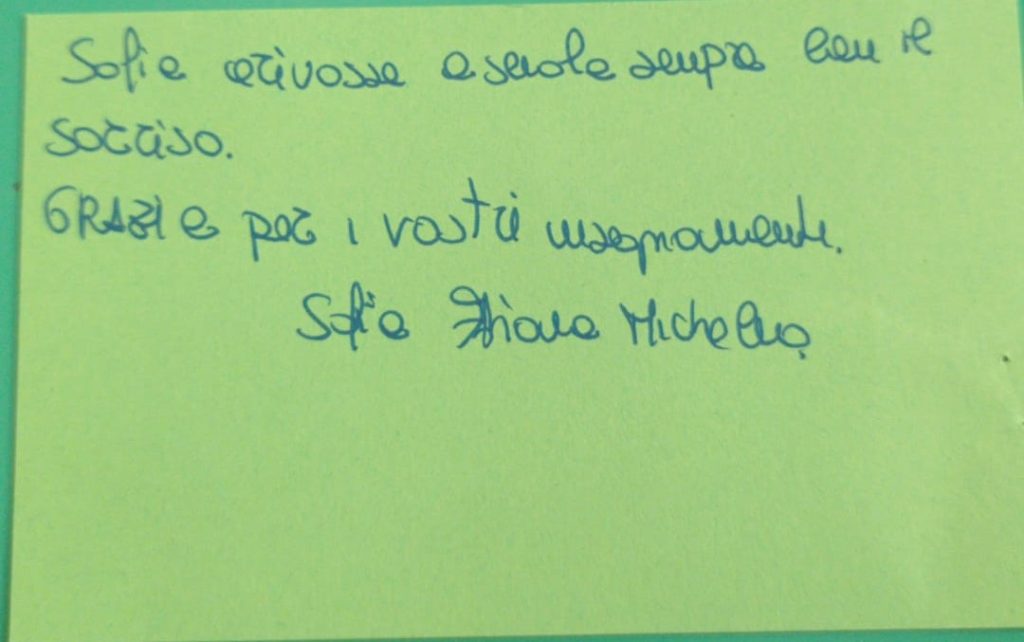 Sofia arivasse a scuola sempre con il
sorriso.
GRAZIE per i vostri insegnamenti.
Sofia Michelina